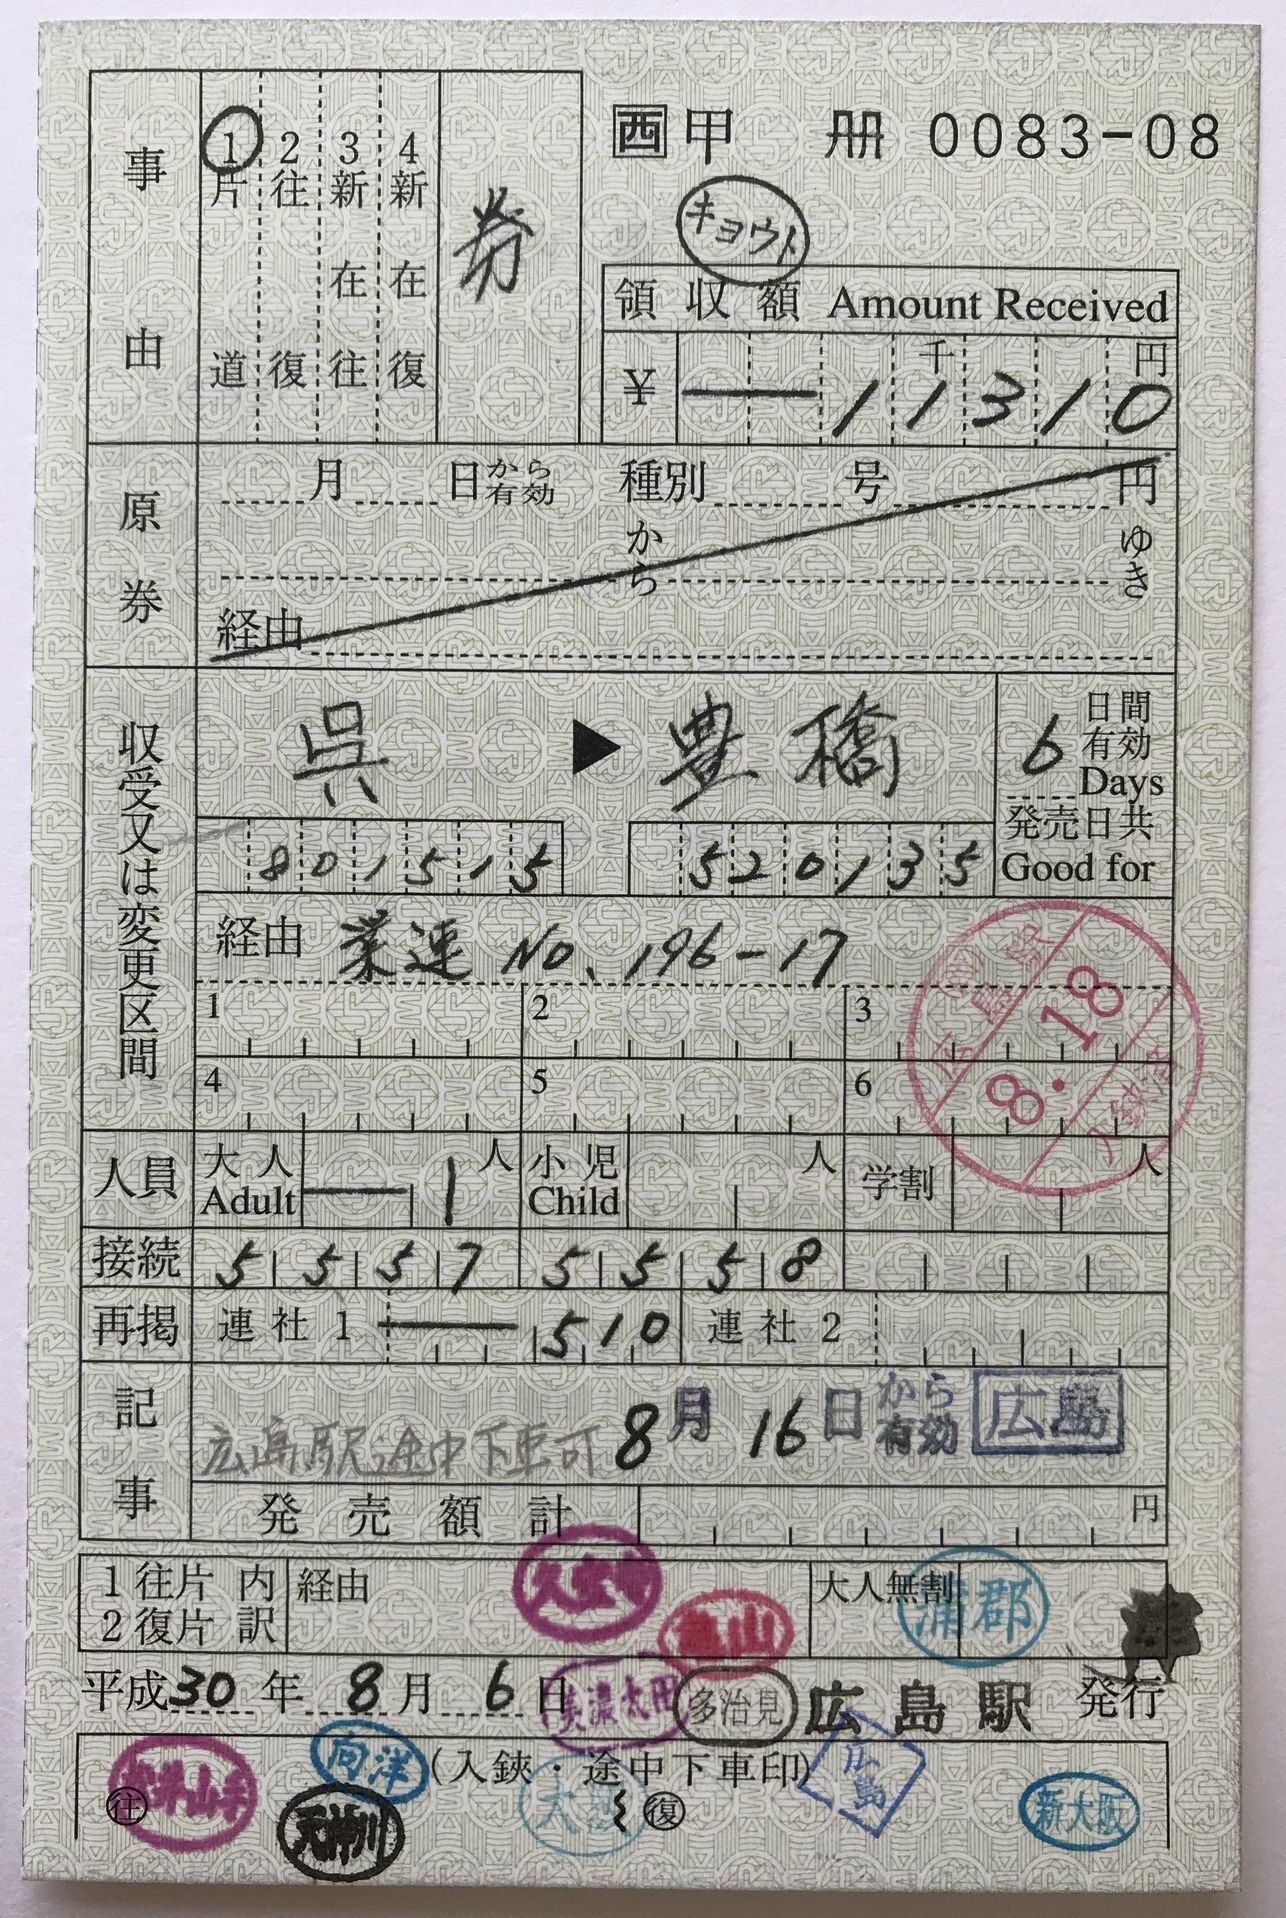 西 甲 冊 0083-08
事由
1片道
2往復
3新在往
4新在復
券
キョウト
領収額 Amount Received
¥ 千 円
11310
原券
月 日から有効 種別 号 円
から ゆき
経由
収受又は変更区間
呉 ▶ 豊橋
6日間有効 Days
発売日共 Good for
801515 520135
経由 業連 No. 196-17
1 2 3
4 5 6
8.18
人員 大人 Adult 1人 小児 Child 人 学割 人
接続 5557 5558
再掲 連社1 510 連社2
記事
広島駅途中下車可 8月16日から有効 広島
発売額計 円
1往片 内
2復片 訳
経由
大人無割
蒲郡
亀山
平成30年8月6日 美濃太田 多治見 広島駅 発行
(入鋏・途中下車印)
往 向洋 天神川 復 広島 新大阪